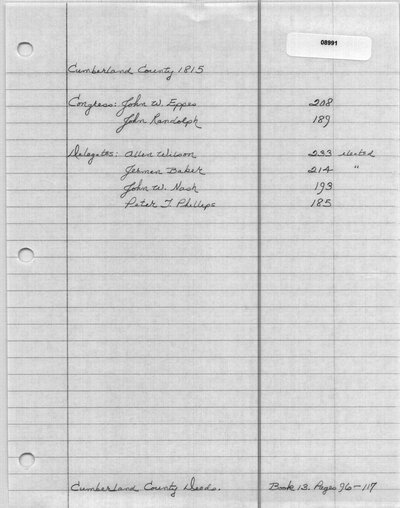 08991
Cumberland County 1815
Congress: John W. Eppes 208
John Randolph 189
Delegates: Allen Wilson 233 elected
Jerman Baker 214 "
John W. Nash 193
Peter T. Phillips 185
Cumberland County Deeds. Book 13. Pages 96-117